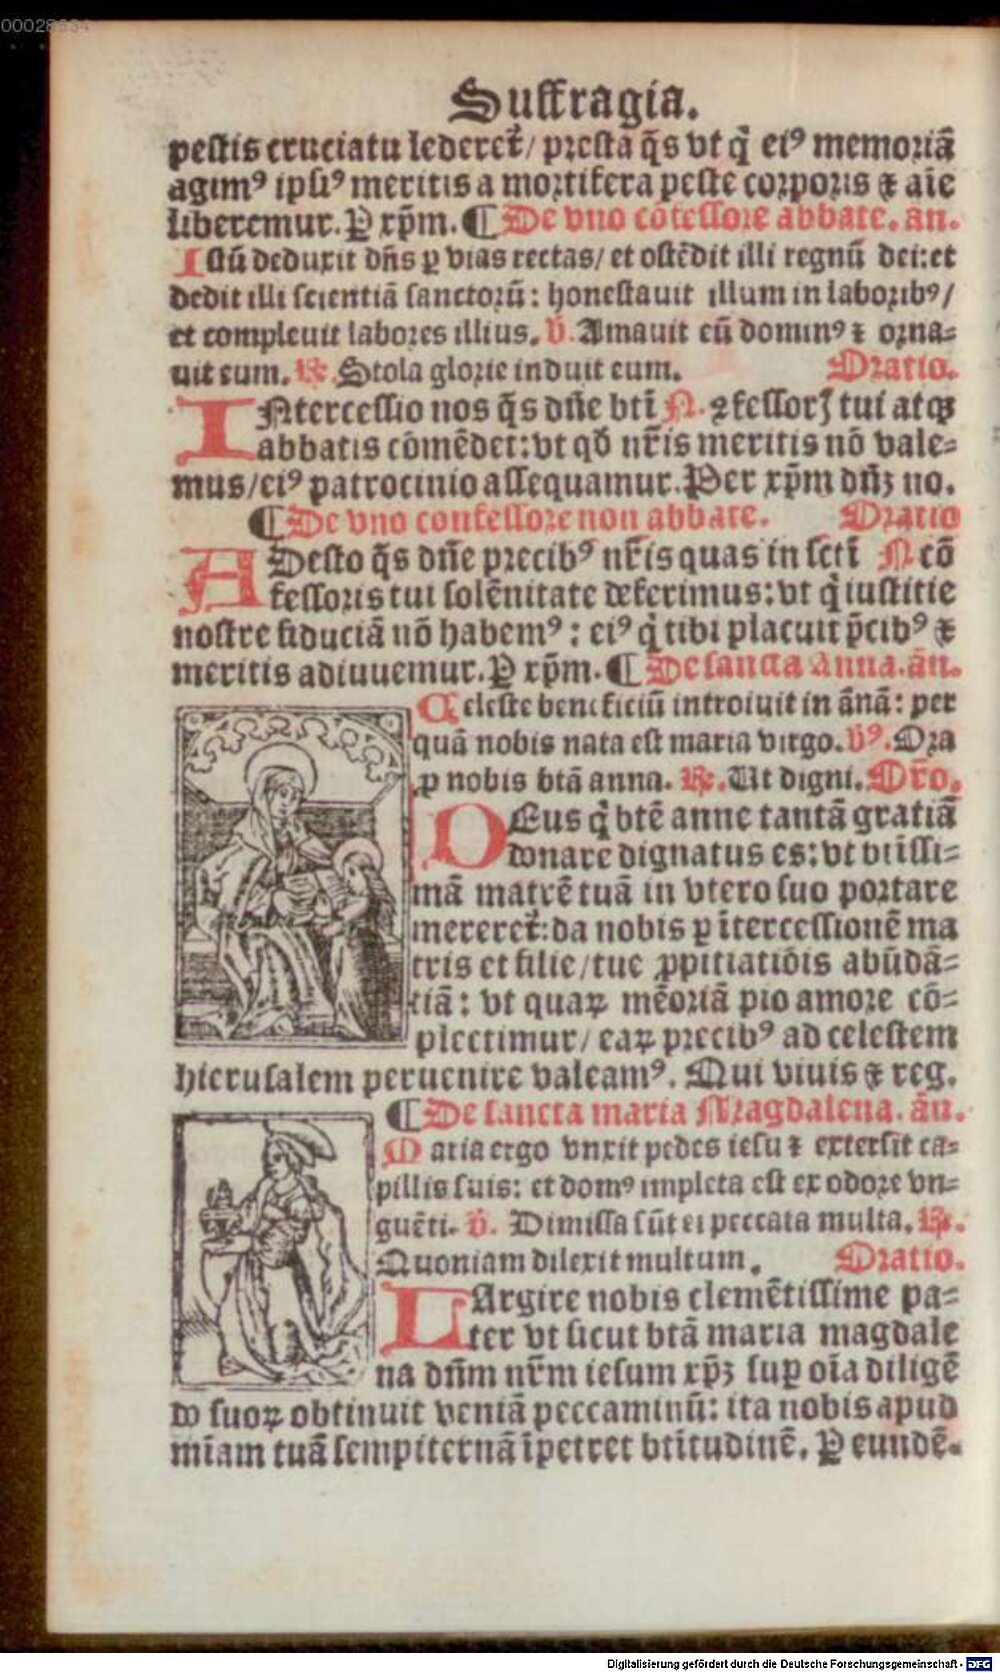 00028664
Suffragia.
pestis cruciatu lederet̃/ presta q̄s vt q̇ eiꝰ memoriā
agimꝰ ipsiꝰ meritis a mortifera peste corporis ⁊ aīe
liberemur. P xp̄m. ¶ De vno cōfessore abbate. an.
Istū deduxit dn̄s ꝑ vias rectas/ et ostēdit illi regnū dei: et
dedit illi scientiā sanctorū: honestauit illum in laboribꝰ/
et compleuit labores illius. V̄. Amauit eū dominꝰ ⁊ orna-
uit eum. ℞. Stola glorie induit eum. Oratio.
INtercessio nos q̄s dn̄e bt̄i N. ꝯfessorꝭ tui atqꝫ
abbatis cōmēdet: vt qd̄ nr̄is meritis nō vale-
mus/ eiꝰ patrocinio assequamur. Per xp̄m dn̄ꝫ no.
¶ De vno confessore non abbate. Oratio
ADesto q̄s dn̄e precibꝰ nr̄is quas in scti N cō
fessoris tui solēnitate deferimus: vt q̇ iustitie
nostre fiduciā nō habemꝰ: eiꝰ q̇ tibi placuit p̄cibꝰ ⁊
meritis adiuuemur. P xp̄m. ¶ De sancta Anna. ān.
Celeste beneficiū introiuit in ānā: per
quā nobis nata est maria virgo. V̄ꝰ. Ora
ꝓ nobis btā anna. ℞. Ut digni. Or̄o.
DEus q̇ btē anne tantā gratiā
donare dignatus es: vt btīssi-
mā matrē tuā in vtero suo portare
mereret̃: da nobis ꝑ ītercessionē ma
tris et filie/ tue ꝓpitiatiōis abūdā-
tiā: vt quaꝝ mēoriā pio amore cō-
plectimur/ eaꝝ precibꝰ ad celestem
hierusalem peruenire valeamꝰ. Qui viuis ⁊ reg.
¶ De sancta maria Magdalena. ān.
Maria ergo vnxit pedes iesu ⁊ extersit ca-
pillis suis: et domꝰ impleta est ex odore vn-
guēti. V̄. Dimissa sūt ei peccata multa. ℞.
Quoniam dilexit multum. Oratio.
LArgire nobis clemētissime pa-
ter vt sicut btā maria magdale
na dn̄m nr̄m iesum xp̄ꝫ suꝑ oīa diligē
do suoꝝ obtinuit veniā peccaminū: ita nobis apud
mīam tuā sempiternā īpetret btītudinē. P eundē.
Digitalisierung gefördert durch die Deutsche Forschungsgemeinschaft - DFG